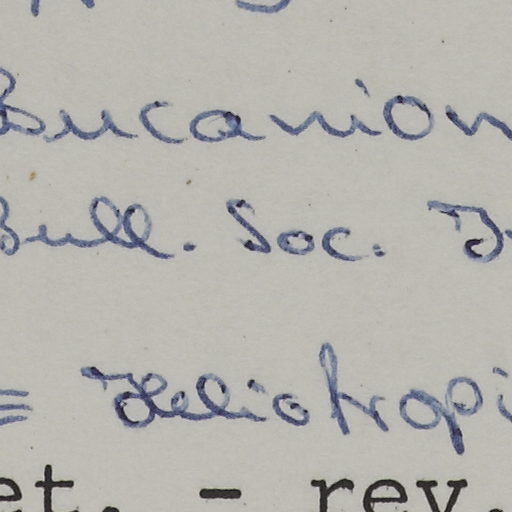 Bucanion
Bull. Soc.
≡ Heliotropi
et. - rev.